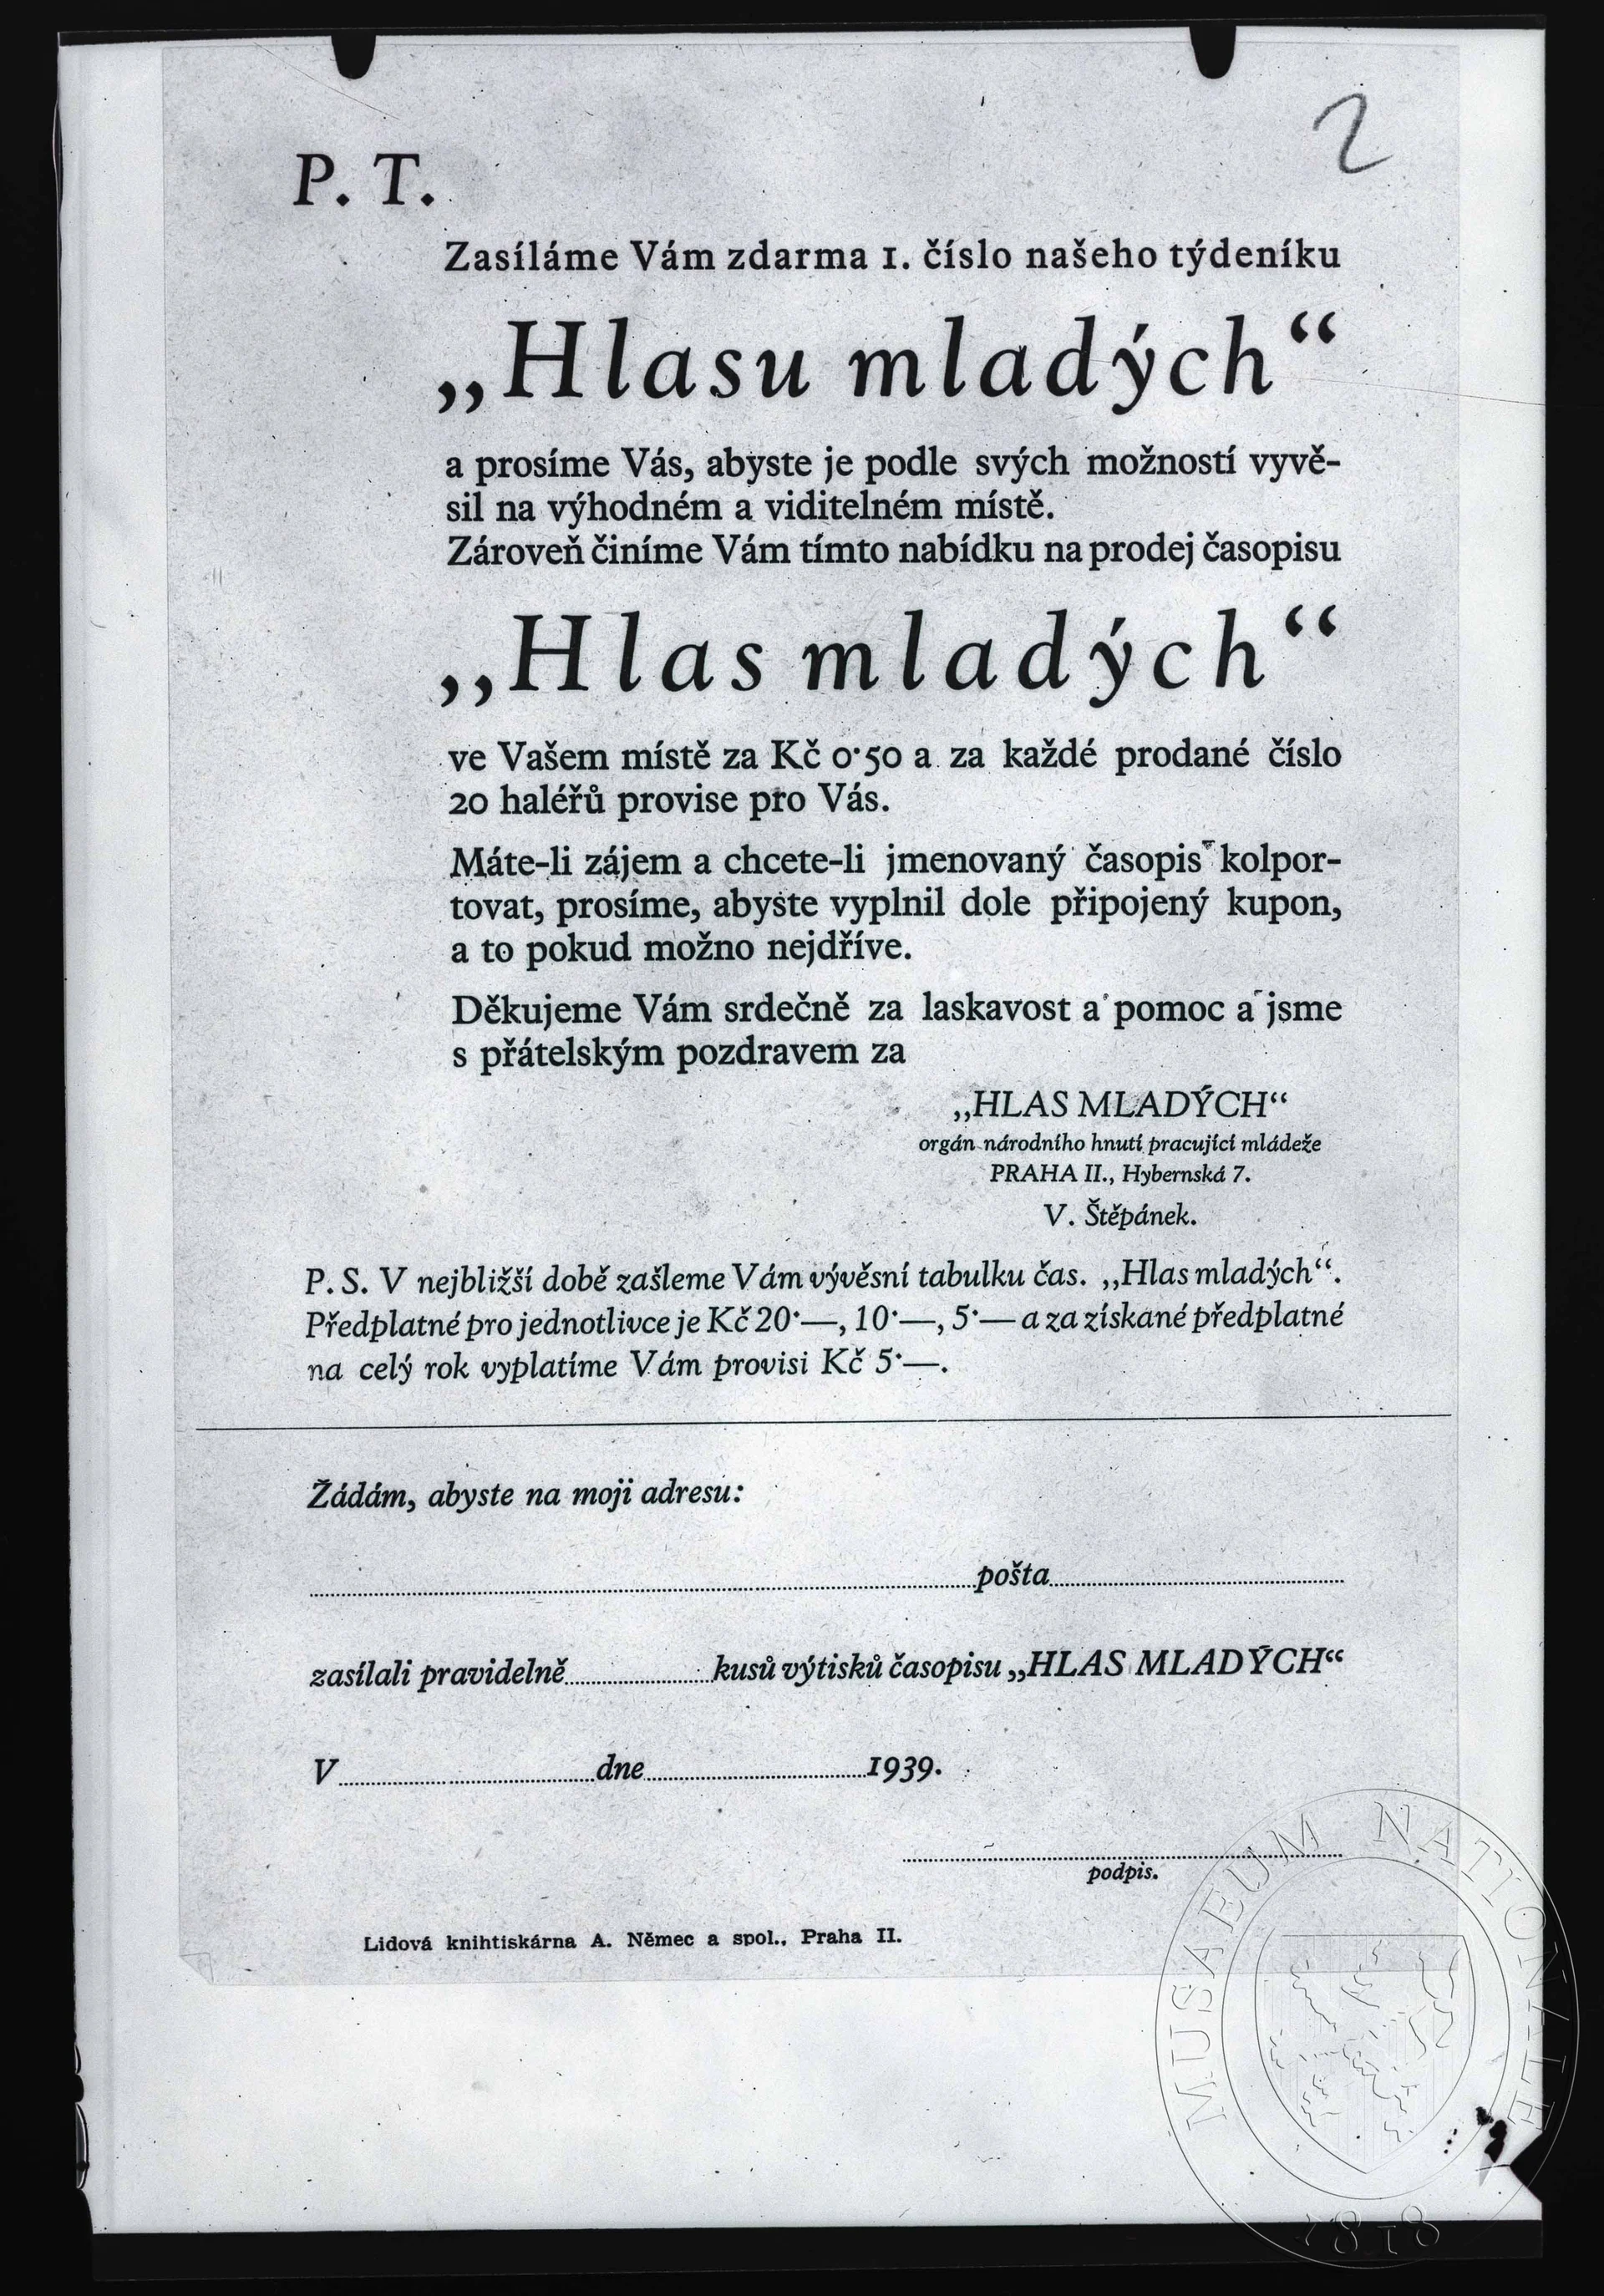 2
P. T.
Zasíláme Vám zdarma 1. číslo našeho týdeníku
„Hlasu mladých“
a prosíme Vás, abyste je podle svých možností vyvě-
sil na výhodném a viditelném místě.
Zároveň činíme Vám tímto nabídku na prodej časopisu
„Hlas mladých“
ve Vašem místě za Kč 0·50 a za každé prodané číslo
20 haléřů provise pro Vás.
Máte-li zájem a chcete-li jmenovaný časopis kolpor-
tovat, prosíme, abyste vyplnil dole připojený kupon,
a to pokud možno nejdříve.
Děkujeme Vám srdečně za laskavost a pomoc a jsme
s přátelským pozdravem za
„HLAS MLADÝCH“
orgán národního hnutí pracující mládeže
PRAHA II., Hybernská 7.
V. Štěpánek.
P. S. V nejbližší době zašleme Vám vývěsní tabulku čas. „Hlas mladých“.
Předplatné pro jednotlivce je Kč 20·—, 10·—, 5·— a za získané předplatné
na celý rok vyplatíme Vám provisi Kč 5·—.
Žádám, abyste na moji adresu:
pošta
zasílali pravidelně kusů výtisků časopisu „HLAS MLADÝCH“
V dne 1939.
podpis.
Lidová knihtiskárna A. Němec a spol., Praha II.
MUSAEUM NATIONALE
1818